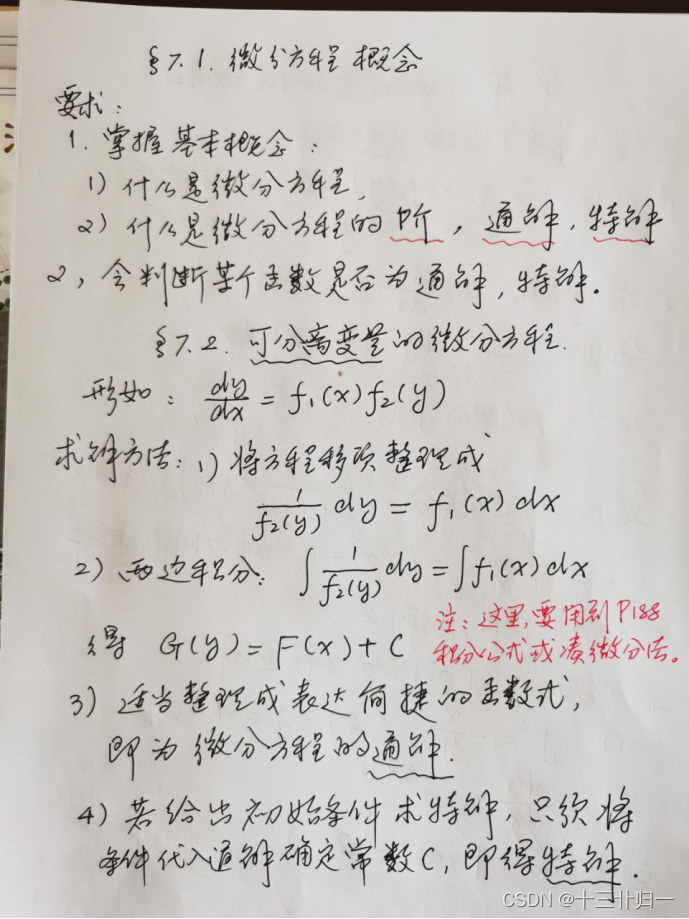 §7.1. 微分方程概念
要求：
1. 掌握基本概念：
1) 什么是微分方程,
2) 什么是微分方程的阶，通解，特解
2，会判断某个函数是否为通解，特解.
§7.2. 可分离变量的微分方程.
形如：dy/dx = f₁(x)f₂(y)
求解方法：1) 将方程移项整理成
1/f₂(y) dy = f₁(x) dx
2) 两边积分：∫ 1/f₂(y) dy = ∫ f₁(x) dx
注：这里,要用到P188
得 G(y) = F(x) + C
积分公式或凑微分法。
3) 适当整理成表达简捷的函数式，
即为微分方程的通解.
4) 若给出初始条件求特解，只须将
条件代入通解确定常数C，即得特解.
CSDN @十三卝归一